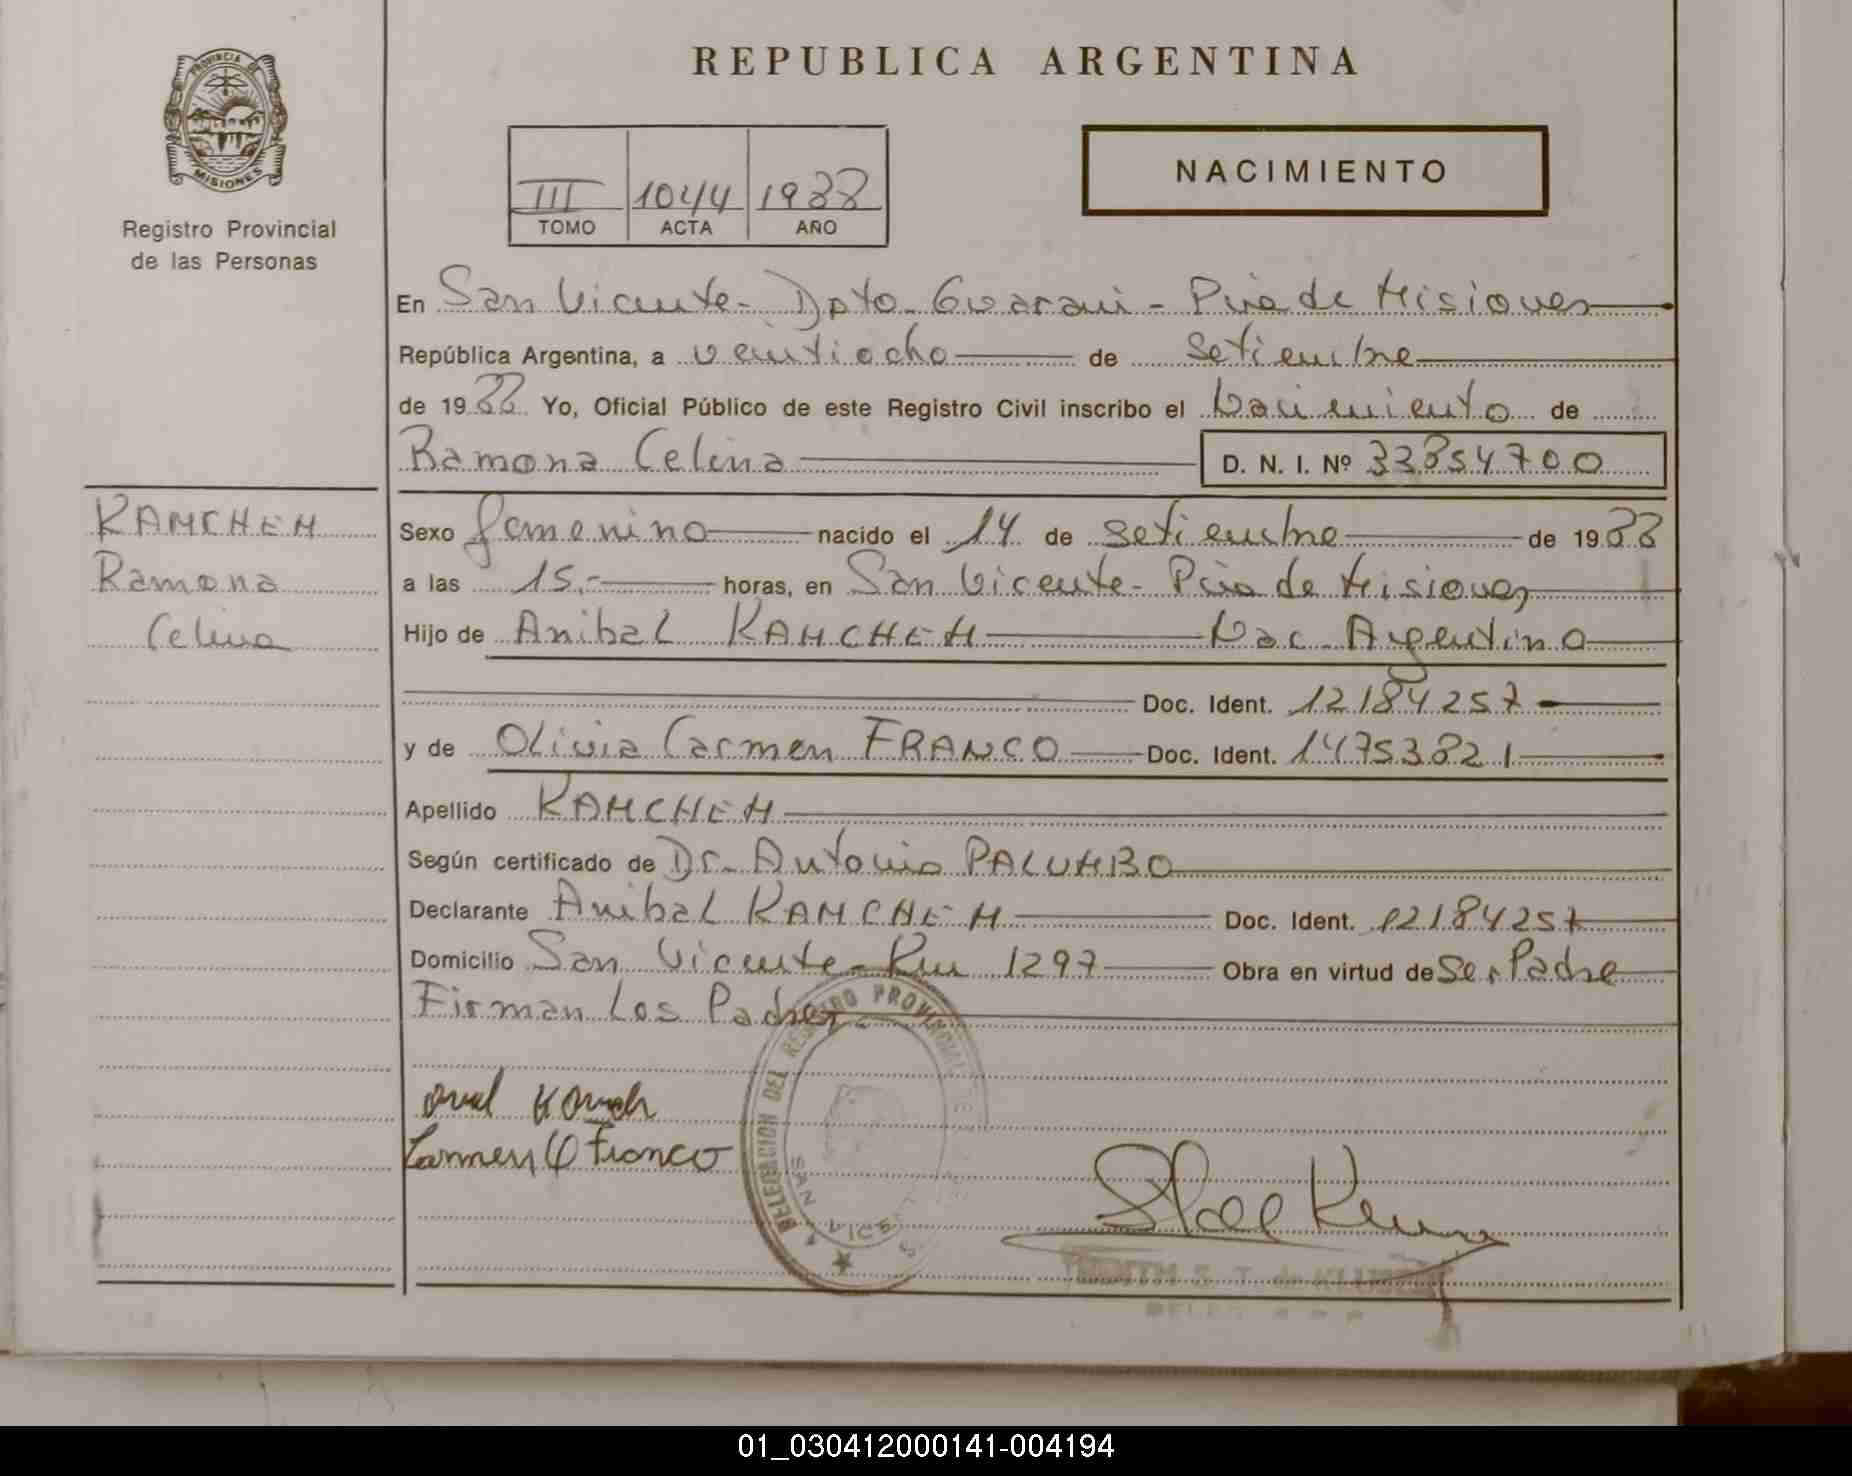 PROVINCIA DE
MISIONES
Registro Provincial
de las Personas
REPUBLICA ARGENTINA
III 1044 1988
TOMO ACTA AÑO
NACIMIENTO
En San Vicente - Dpto. Guarani - Pcia de Misiones
República Argentina, a veintiocho de setiembre
de 1988 Yo, Oficial Público de este Registro Civil inscribo el Nacimiento de
Ramona Celina D. N. I. Nº 33854700
KAMCHEM
Ramona
Celina
Sexo femenino nacido el 14 de setiembre de 1988
a las 15.- horas, en San Vicente - Pcia de Misiones
Hijo de Anibal KAMCHEM Nac. Argentino
Doc. Ident. 12184257
y de Olivia Carmen FRANCO Doc. Ident. 14753821
Apellido KAMCHEM
Según certificado de Dr. Antonio PALUMBO
Declarante Anibal KAMCHEM Doc. Ident. 12184257
Domicilio San Vicente - Km 1297 Obra en virtud de Ser Padre
Firman Los Padres.
Carmen O Franco
DELEGACION DEL REGISTRO PROVINCIAL
SAN VICE
01_030412000141-004194